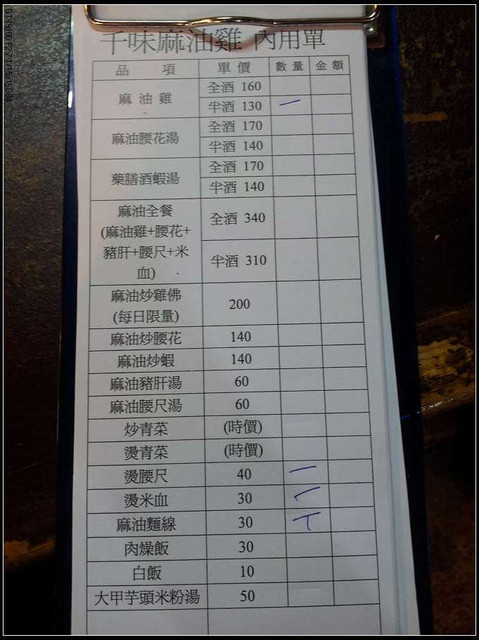 千味麻油雞 內用單
品 項 單 價 數 量 金 額
麻 油 雞 全酒 160
半酒 130 一
麻油腰花湯 全酒 170
半酒 140
藥膳酒蝦湯 全酒 170
半酒 140
麻油全餐
(麻油雞+腰花+
豬肝+腰尺+米
血)
全酒 340
半酒 310
麻油炒雞佛
(每日限量)
200
麻油炒腰花 140
麻油炒蝦 140
麻油豬肝湯 60
麻油腰尺湯 60
炒青菜 (時價)
燙青菜 (時價)
燙腰尺 40 一
燙米血 30 一
麻油麵線 30 T
肉燥飯 30
白飯 10
大甲芋頭米粉湯 50